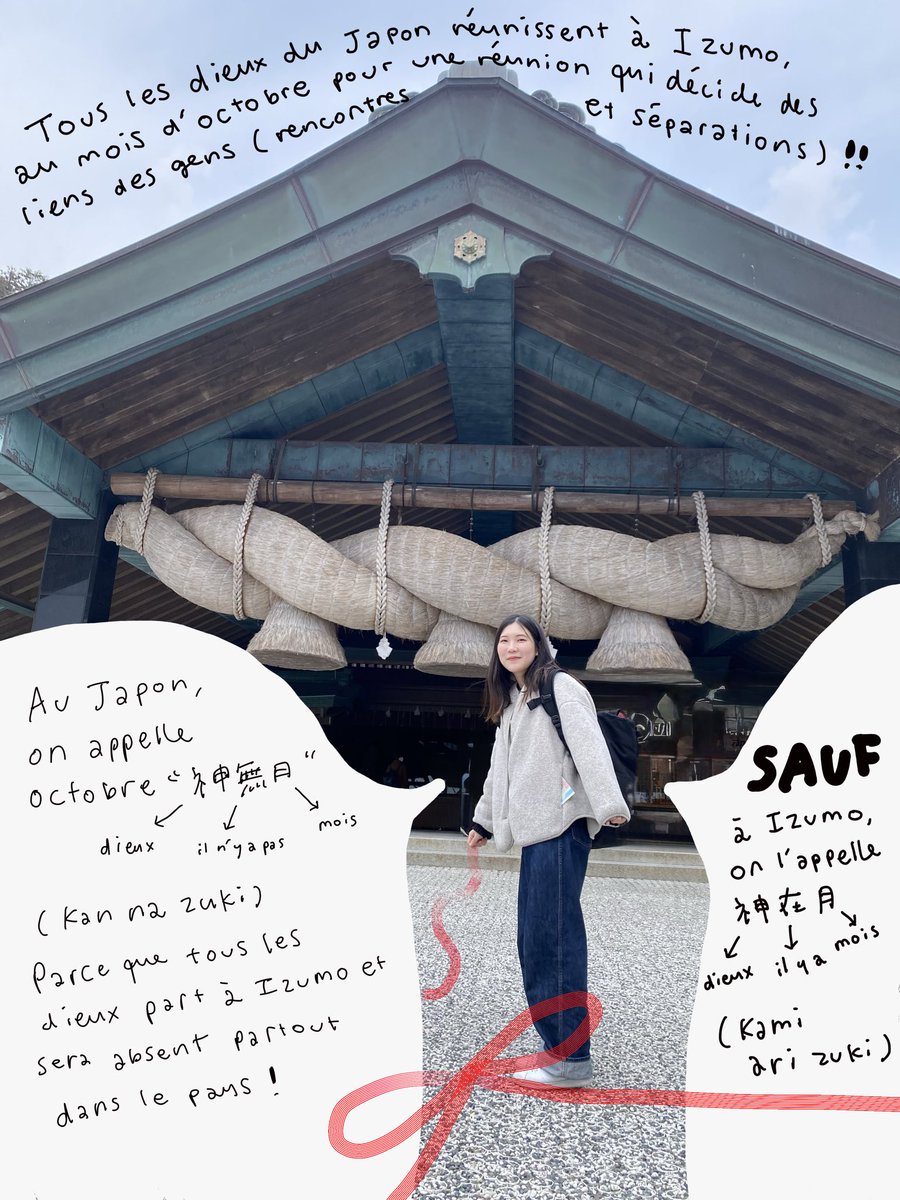 Tous les dieux du Japon réunissent à Izumo,
au mois d'octobre pour une réunion qui décide des
liens des gens (rencontres et séparations)!!
Au Japon,
on appelle
octobre "神無月"
dieux il n'y a pas mois
(Kan na zuki)
Parce que tous les
dieux part à Izumo et
sera absent partout
dans le pays!
SAUF
à Izumo,
on l'appelle
神在月
dieux il y a mois
(Kami
ari zuki)